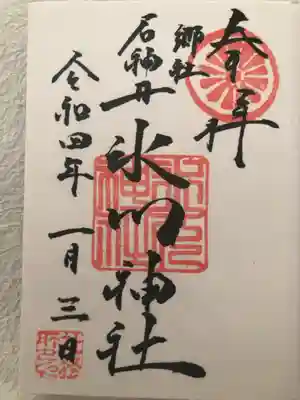 奉拝
郷社
石神井
氷川神社
令和四年一月三日